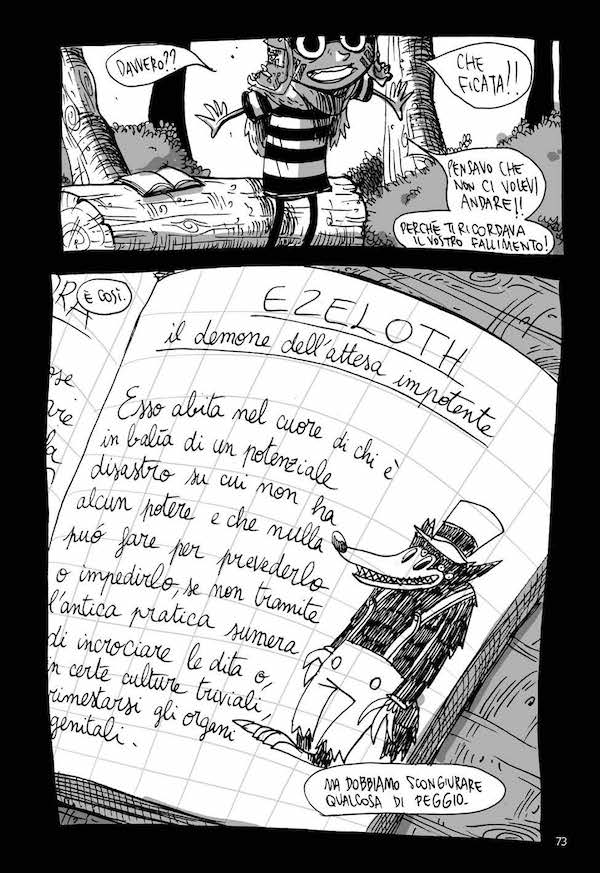 DAVVERO??
CHE
FICATA!!
PENSAVO CHE
NON CI VOLEVI
ANDARE!!
PERCHÉ TI RICORDAVA
IL VOSTRO FALLIMENTO!
È COSÌ.
EZELOTH
il demone dell'attesa impotente
Esso abita nel cuore di chi è
in balìa di un potenziale
disastro su cui non ha
alcun potere e che nulla
può fare per prevederlo
o impedirlo, se non tramite
l'antica pratica sumera
di incrociare le dita o,
in certe culture triviali,
rimestarsi gli organi
genitali.
MA DOBBIAMO SCONGIURARE
QUALCOSA DI PEGGIO.
73